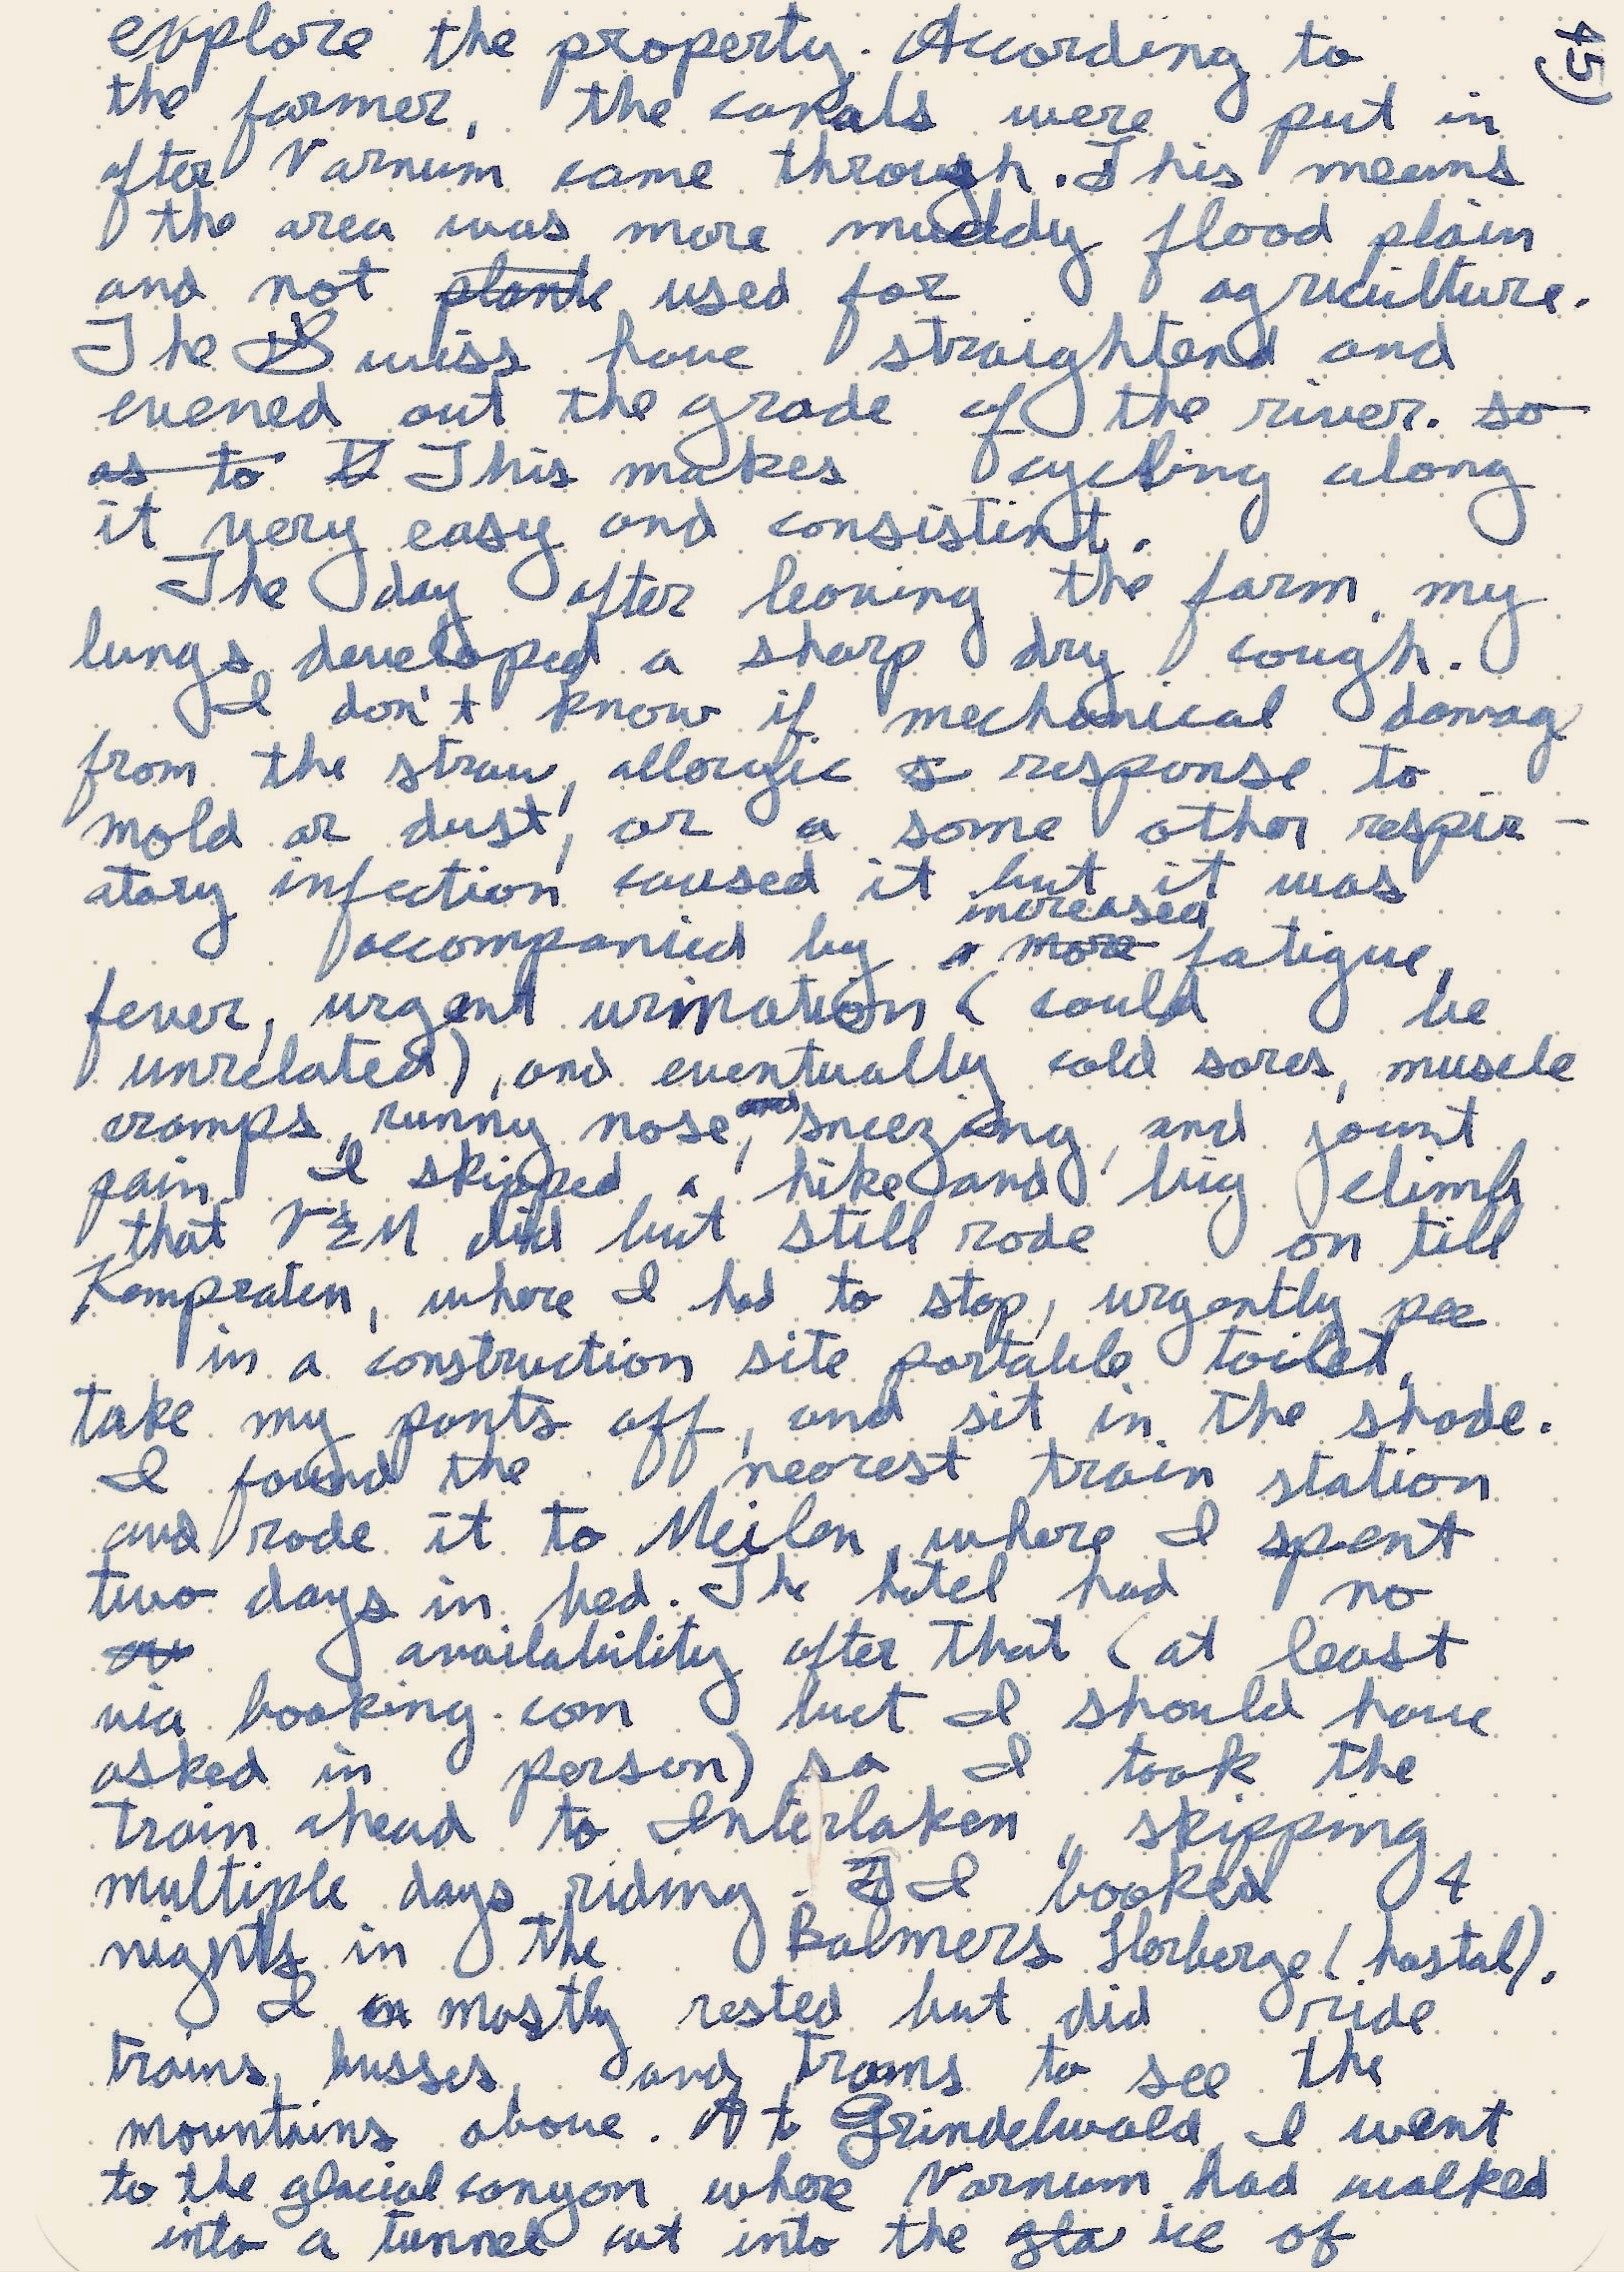 explore the property. According to
15)
the farmer, the canals were put in
after Varnum came through. This means
the area was more muddy flood plain
and not used for agriculture.
The Swiss have straightend and
evened out the grade of the river. so
as to This makes cycling along
it very easy and consistint.
The day after leaving the farm, my
lungs developed a sharp dry cough.
I don't know if mechanical damag
from the straw, allergic response to
mold or dust, or a some other respir-
atory infection caused it but it was
increased
accompanied by a more fatigue,
fever, urgent urination (could be
unrelated), and eventually cold sores, muscle
cramps, runny nose, and sneezing, and joint
pain. I skipped a hike and big climb
that V&M did but still rode on till
Kempraten, where I had to stop, urgently pee
in a construction site portable toilet,
take my pants off, and sit in the shade.
I found the nearest train station
and rode it to Meilen, where I spent
two days in bed. The hotel had no
availability after that (at least
via booking.com but I should have
asked in person) so I took the
train ahead to Interlaken, skipping
multiple days riding. I booked 4
nights in the Balmers Herberge (hostal).
I mostly rested but did ride
trains, busses, and trams to see the
mountains above. At Grindelwald, I went
to the glacial canyon where Varnum had walked
into a tunnel cut into the gla ice of